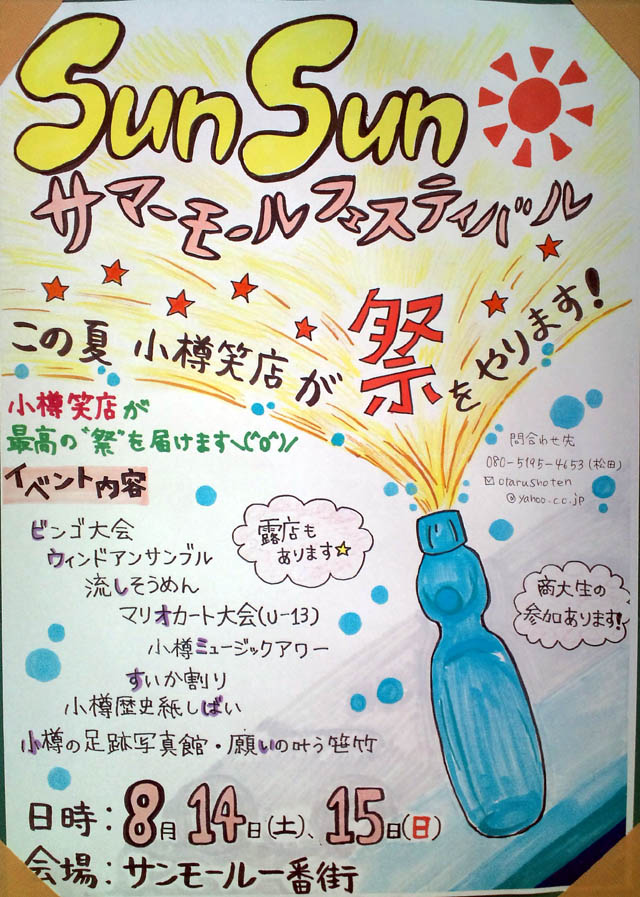 Sun Sun
サマーモールフェスティバル
この夏 小樽笑店が祭をやります!
小樽笑店が
最高の"祭"を届けます\(^o^)/
問合わせ先
080-5195-4653(松田)
✉otarushoten
@yahoo.co.jp
イベント内容
ビンゴ大会
ウィンドアンサンブル
流しそうめん
マリオカート大会(U-13)
小樽ミュージックアワー
すいか割り
小樽歴史紙しばい
小樽の足跡写真館・願いの叶う笹竹
露店も
あります☆
商大生の
参加あります!
日時:8月14日(土)、15日(日)
会場:サンモール一番街